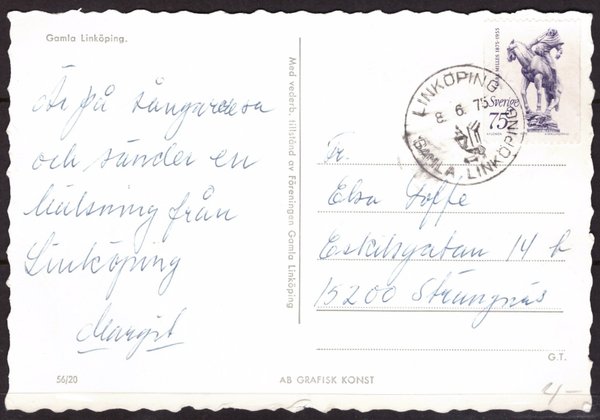 Gamla Linköping.
Är på sångardesa
och sänder en
hälsning från
Linköping
Margit
56/20
Med vederb. tillstånd av Föreningen Gamla Linköping
AB GRAFISK KONST
LINKÖPING
8. 6. 75
GAMLA LINKÖPING
MILLES 1875-1955
Sverige
75
Fr.
Elsa
Eskilsgatan 14 b
15200 Strängnäs
G.T.
4-